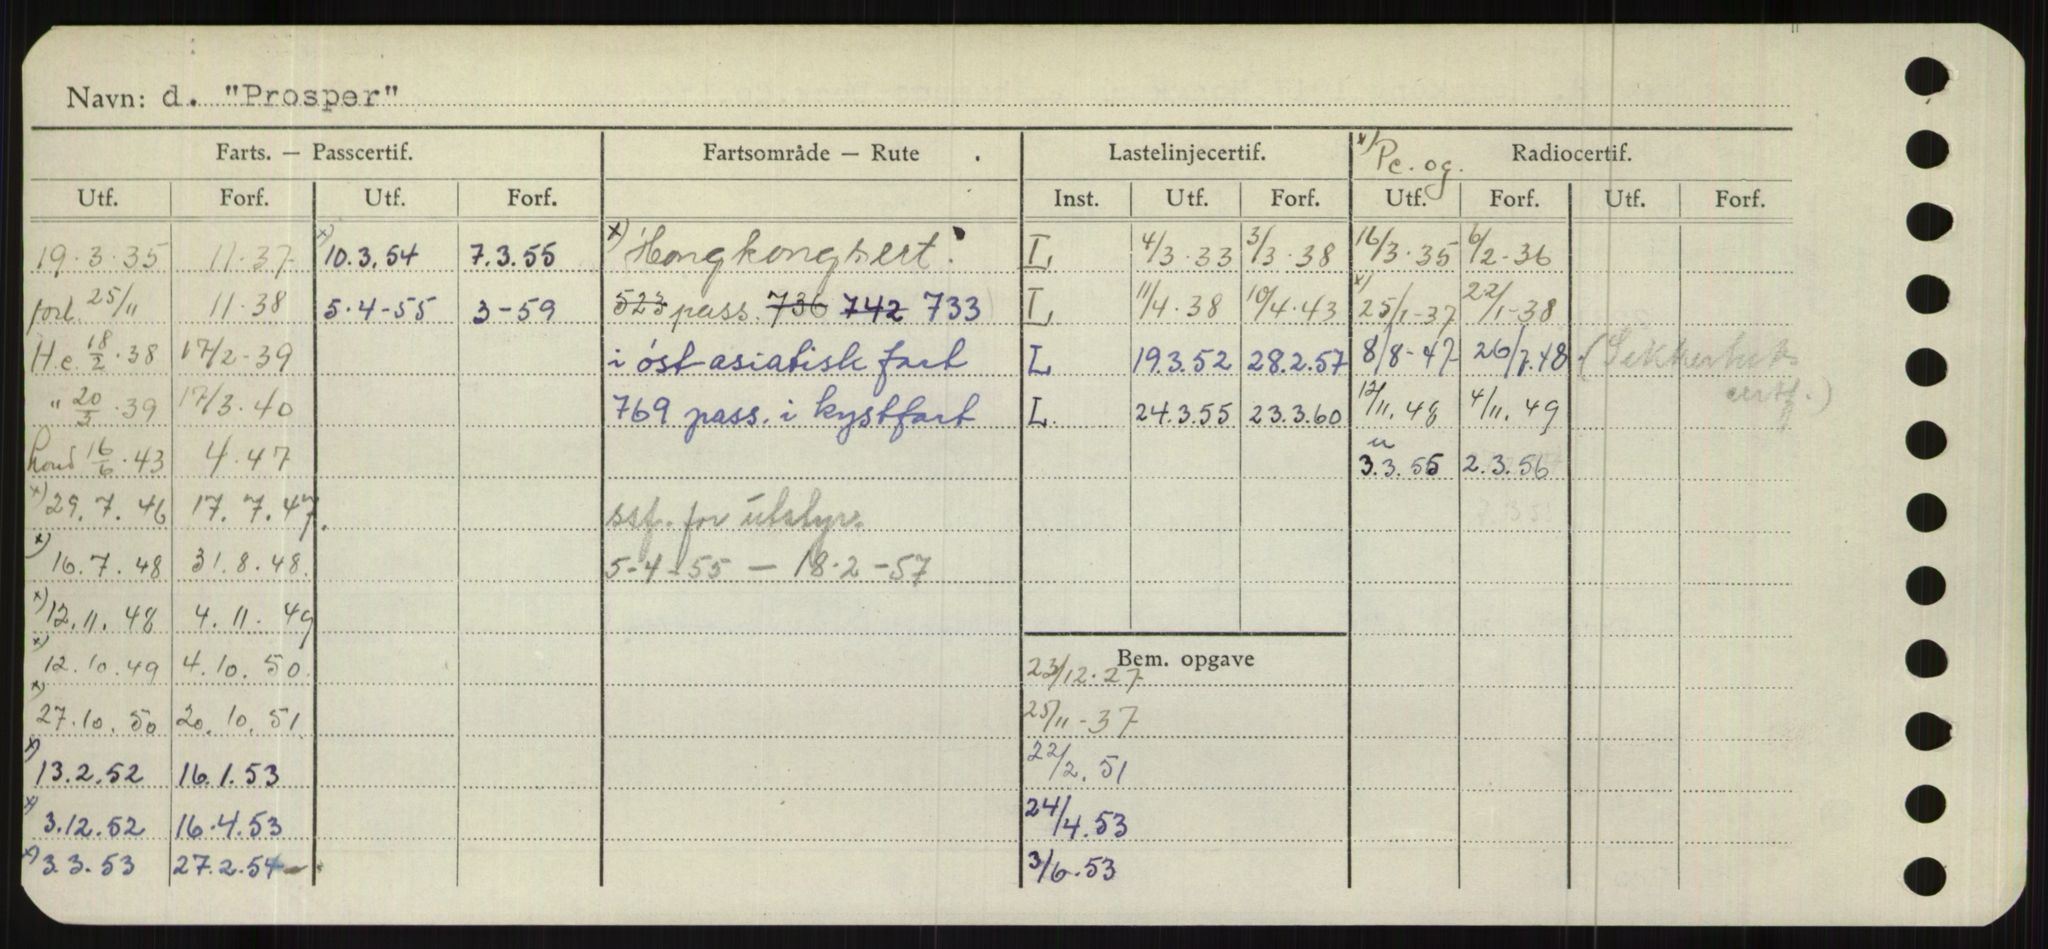 Navn: d. "Prosper"
Farts. — Passcertif. Fartsområde — Rute Lastelinjecertif. x) Pc. og. Radiocertif.
Utf. Forf. Utf. Forf. Inst. Utf. Forf. Utf. Forf. Utf. Forf.
19.3.35 11.37 x) 10.3.54 7.3.55 x) Hongkongsert. I, 4/3.33 3/3.38 16/3.35 6/2-36
forl. 25/11 11.38 5.4-55 3-59 523 pass. 736 742 733 I, 11/4.38 10/4.43 x) 25/1-37 22/1-38
H.c. 18/2.38 17/2-39 i óst asiatisk fart L 19.3.52 28.2.57 8/8-47 26/7.48 (Sikkerhets
" 20/3.39 17/3.40 769 pass. i kystfart L. 24.3.55 23.3.60 12/11.48 4/11.49 certf.)
Kond 16/6.43 4.47 " 3.3.55 2.3.56
x) 29.7.46 17.7.47. ssf. for utstyr.
x) 16.7.48 31.8.48. 5-4-55 — 18.2-57
x) 12.11.48 4.11.49
x) 12.10.49 4.10.50. Bem. opgave 23/12.27
x) 27.10.50 20.10.51 25/11-37
x) 13.2.52 16.1.53 22/2.51
x) 3.12.52 16.4.53 24/4.53
x) 3.3.53 27.2.54 3/6.53